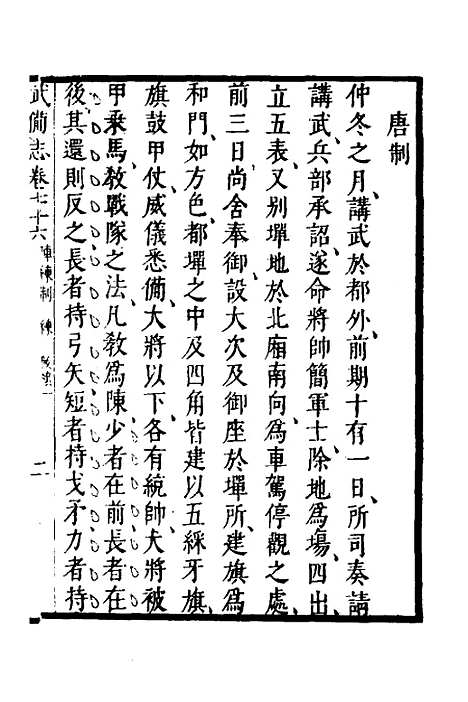 唐制
仲冬之月講武於都外前期十有一日所司奏請
講武兵部承詔遂命將帥簡軍士除地爲場四出
立五表又別墠地於北廂南向爲車駕停觀之處
前三日尚舍奉御設大次及御座於墠所建旗爲
和門如方色都墠之中及四角皆建以五綵牙旗
旗鼓甲仗威儀悉備大將以下各有統帥大將被
甲乘馬敎戰隊之法凡敎爲陳少者在前長者在
後其還則反之長者持弓矢短者持戈矛力者持
武備志卷七十六 陣練制 練 二